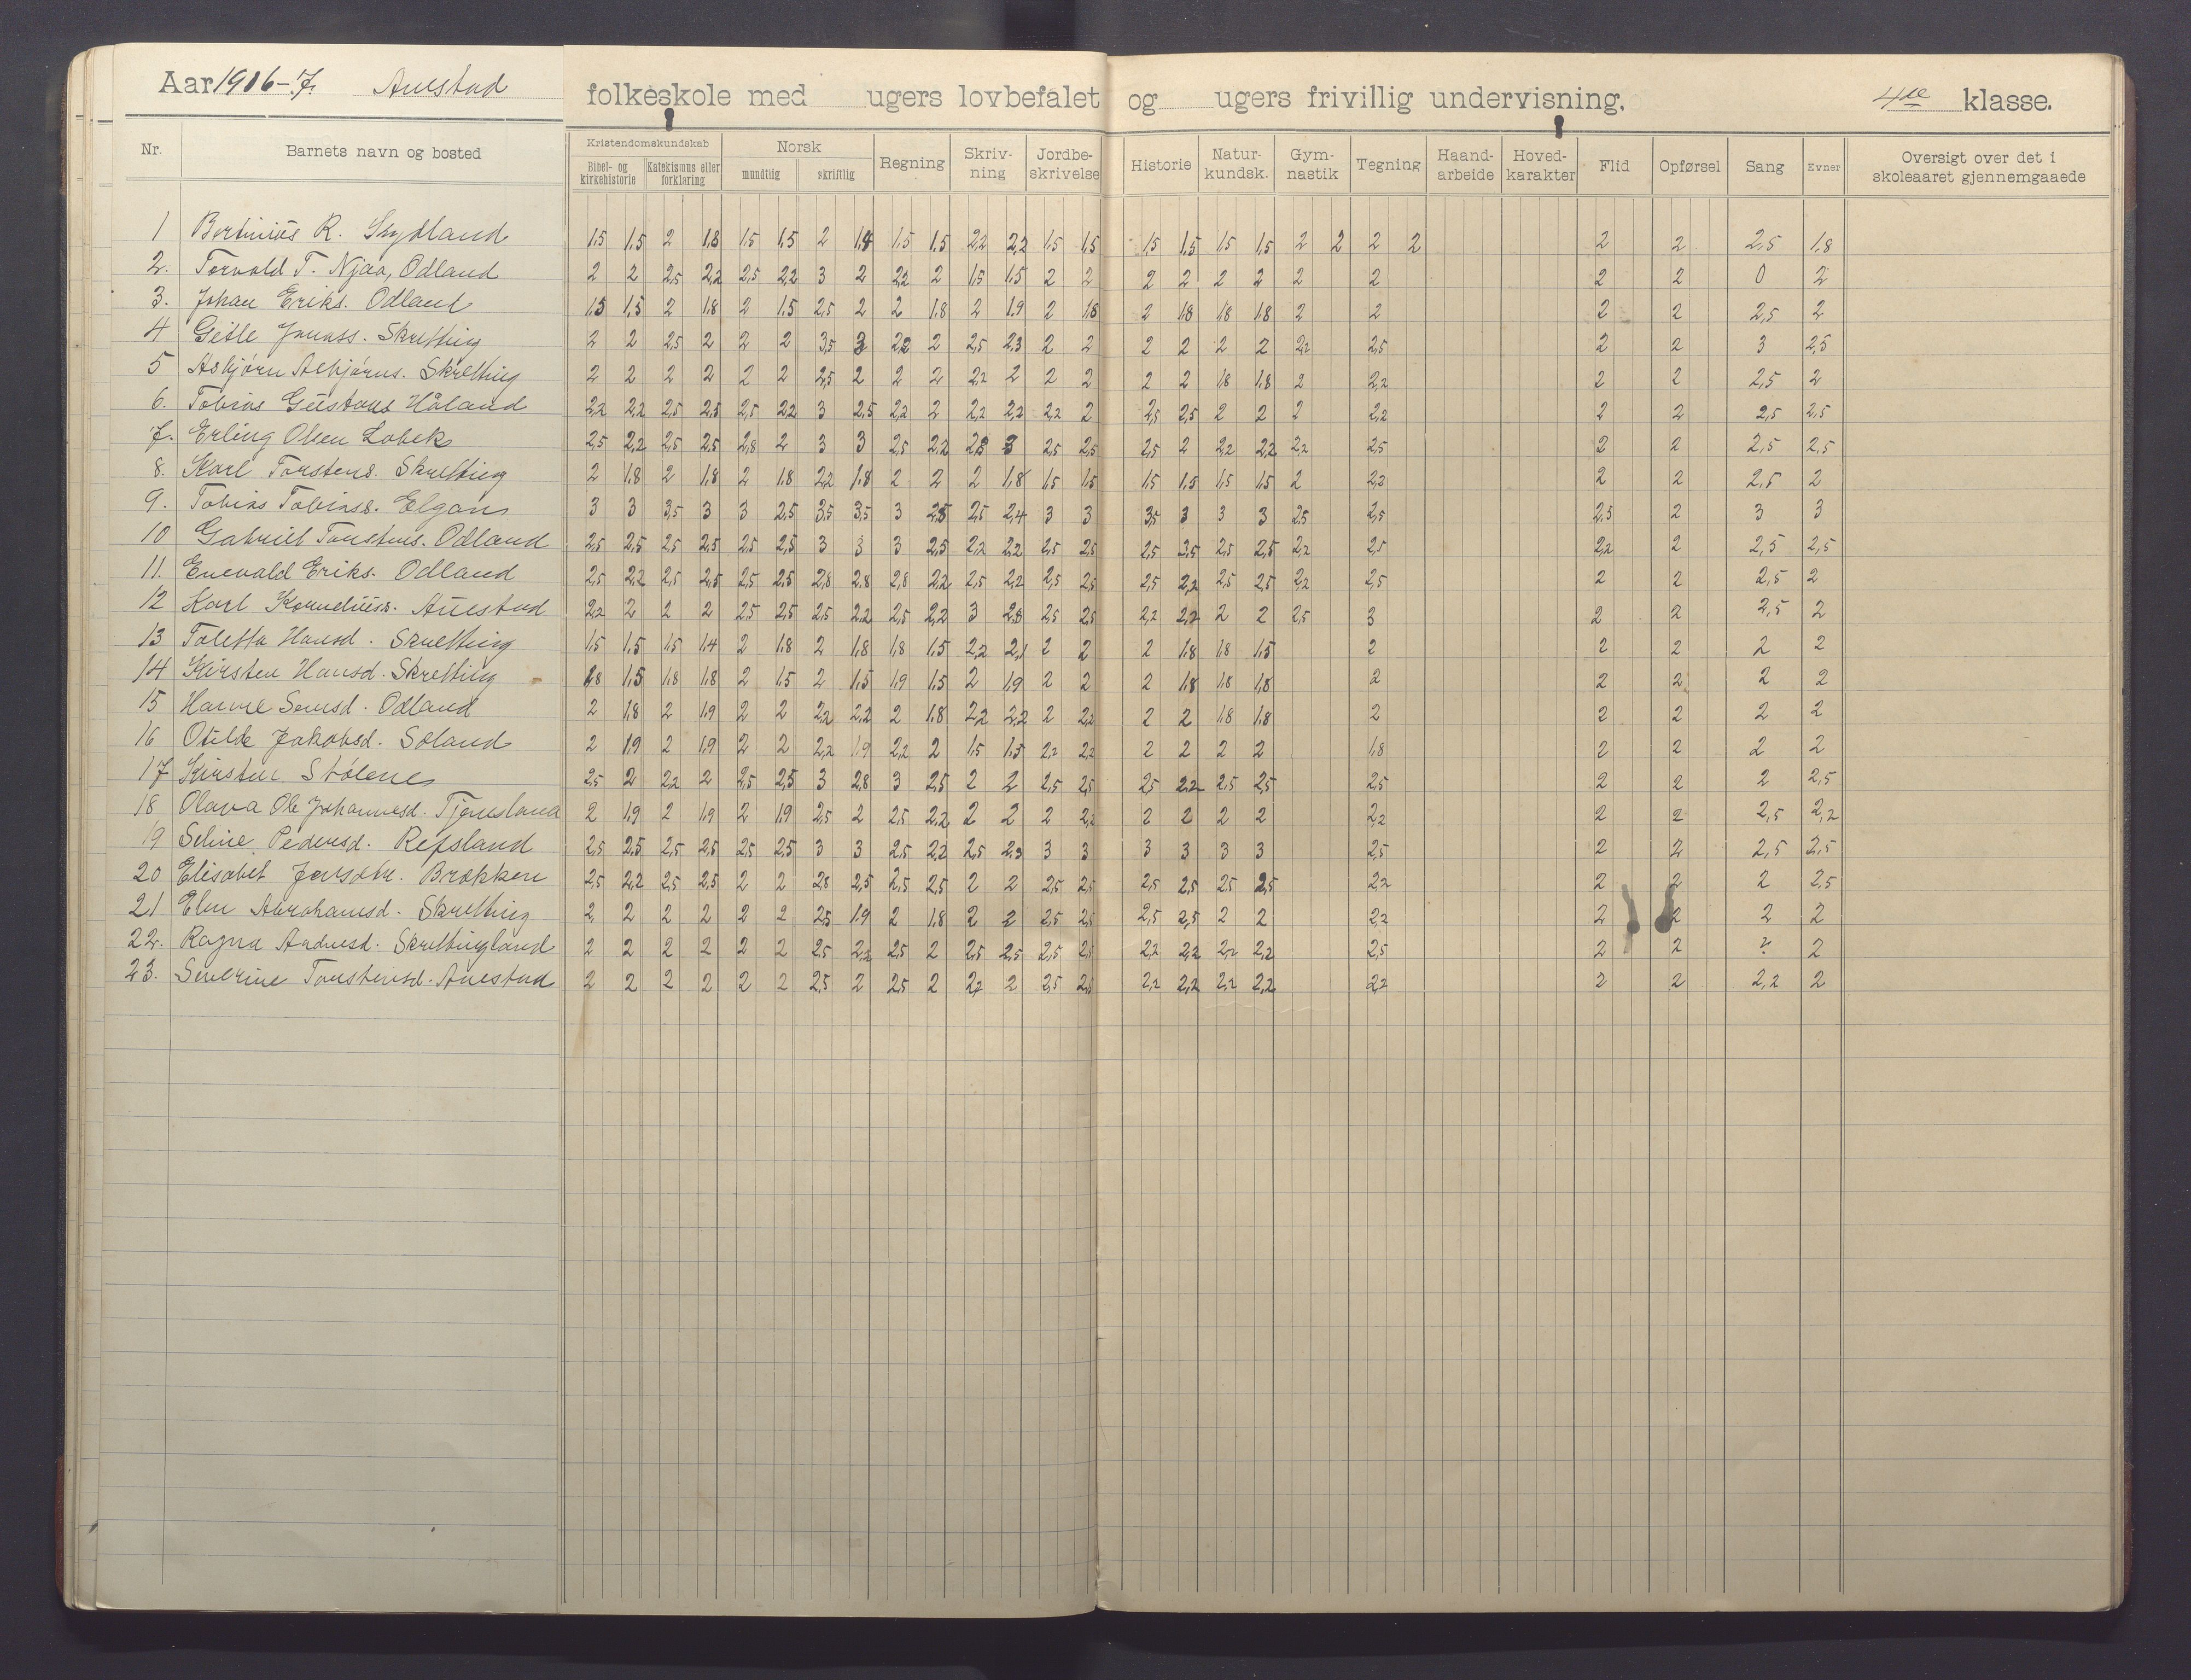 Aar 1906-7. Auestad folkeskole med ugers lovbefalet og ugers frivillig undervisning. 4de klasse.
Nr. Barnets navn og bosted Kristendomskundskab Bibel- og kirkehistorie Katekismus eller forklaring Norsk mundtlig skriftlig Regning Skriv-ning Jordbe-skrivelse Historie Natur-kundsk. Gym-nastik Tegning Haand-arbeide Hoved-karakter Flid Opførsel Sang Evner Oversigt over det i skoleaaret gjennemgaaede
1 R. 1,5 1,5 2 1,8 1,5 1,5 2 1,8 1,5 1,5 2,2 2,2 1,5 1,5 1,5 1,5 1,5 1,5 2 2 2 2 2 2 2,5 1,8
2. Torvald T. Njaa, Odland 2 2 2,5 2,2 2,5 2,2 3 2 2,2 2 1,5 1,5 2 2 2 2 2 2 2 2 2 2 0 2
3. Johan Eriks. Odland 1,5 1,5 2 1,8 2 1,5 2,5 2 2 1,8 2 1,9 2 1,8 2 1,8 1,8 1,8 2 2 2 2 2,5 2
4 Gitle Jonass. Skretting 2 2 2,5 2 2 2 3,5 3 2,2 2 2,5 2,3 2 2 2 2 2 2 2,2 2,5 2 2 3 2,5
5 Asbjørn Asbjørns. Skretting 2 2 2 2 2 2 2,5 2 2 2 2,2 2 2 2 2 2 1,8 1,8 2 2,2 2 2 2,5 2
6. Tobias Gustavs Håland 2,2 2,2 2,5 2,5 2,5 2,2 3 2,5 2,2 2 2,2 2,2 2,2 2 2,5 2,5 2 2 2 2,2 2 2 2,5 2,5
7. Erling Olsen Lobek 2,5 2,2 2,5 2,5 2,8 2 3 3 2,5 2,2 2,8 3 2,5 2,5 2,5 2 2,2 2,2 2,2 2,5 2 2 2,5 2,5
8. Karl Torstens. Skretting 2 1,8 2 1,8 2 1,8 2,2 1,8 2 2 2 1,8 1,5 1,5 1,5 1,5 1,5 1,5 2 2,2 2 2 2,5 2
9. Tobias Tobiass. Elgan 3 3 3,5 3 3 2,5 3,5 3,5 3 2,5 2,4 3 3 3,5 3 3 3 2,5 2,5 2,5 2 3 3
10 Gabriel Tonstens. Odland 2,5 2,5 2,5 2,5 2,5 2,5 3 3 3 2,5 2,2 2,2 2,5 2,5 2,5 2,5 2,5 2,2 2,5 2,2 2 2,5 2,5
11. Enevald Eriks. Odland 2,5 2,2 2,5 2,5 2,5 2,5 2,8 2,8 2,8 2,2 2,5 2,2 2,5 2,5 2,5 2,2 2,5 2,5 2,2 2,5 2 2 2,5 2
12 Karl Korneliuss. Auestad 2,2 2 2 2 2,5 2,5 2,5 2,2 2,5 2,2 3 2,8 2,5 2,5 2,2 2,2 2 2 2,5 3 2 2 2,5 2
13 Taletta Hansd. Skretting 1,5 1,5 1,5 1,4 2 1,8 2 1,8 1,8 1,5 2,2 2,1 2 2 2 1,8 1,8 1,5 2 2 2 2 2
14 Kirsten Hansd. Skretting 1,8 1,5 1,8 1,8 2 1,5 2 1,5 1,9 1,5 2 1,9 2 2 2 1,8 1,8 1,8 2 2 2 2 2
15 Hanne Odland 2 1,8 2 1,9 2 2 2,2 2,2 2 1,8 2,2 2,2 2 2,2 2 2 1,8 1,8 2 2 2 2 2
16 Otilde Jakobsd. Soland 2 1,9 2 1,9 2 2 2,2 1,9 2,2 2 1,5 1,5 2,2 2,2 2 2 2 2 1,8 2 2 2 2
17 Kirsten Stølene 2,5 2 2,2 2 2,5 2,5 3 2,8 3 2,5 2 2 2,5 2,5 2,5 2,2 2,5 2,5 2,5 2 2 2 2,5
18 Olava Ole Johannesd. Tjensland 2 1,9 2 1,9 2 1,9 2,5 2 2,5 2,2 2 2 2 2,2 2 2 2 2 2,2 2 2 2,5 2,2
19 Seline Pedersd. Refsland 2,5 2,5 2,5 2,5 2,5 2,5 3 3 2,5 2,2 2,5 2,3 3 3 3 3 3 3 2,5 2 2 2,5 2,5
20 Elisabet Brekken 2,5 2,2 2,5 2,5 2 2 2,8 2,5 2,5 2,5 2 2 2,5 2,5 2,5 2,5 2,5 2,5 2,2 2 2 2 2,5
21 Elen Abrahamsd. Skretting 2 2 2 2 2 2 2,5 1,9 2 1,8 2 2 2,5 2,5 2,5 2,5 2 2 2,2 2 2 2 2
22. Ragna Andresd. Skrettingland 2 2 2 2 2 2 2,5 2,2 2,5 2 2,5 2,5 2,5 2,5 2,2 2,2 2,2 2,2 2,5 2 2 2 2
23. Severine Tonstensd. Auestad 2 2 2 2 2 2 2,5 2 2,5 2 2,2 2 2,5 2,5 2,2 2,2 2,2 2,2 2,2 2 2 2,2 2